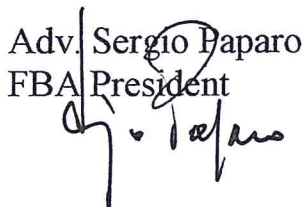 Adv. Sergio Paparo
FBA President